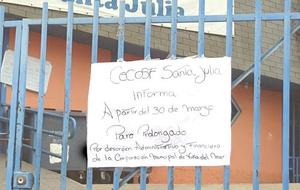 Santa Julia
CECOSF Santa Julia
Informa
A partir del 30 de Marzo
Paro Prolongado
Por desorden Administrativo y Financiero
de la Corporación Municipal de Viña del Mar